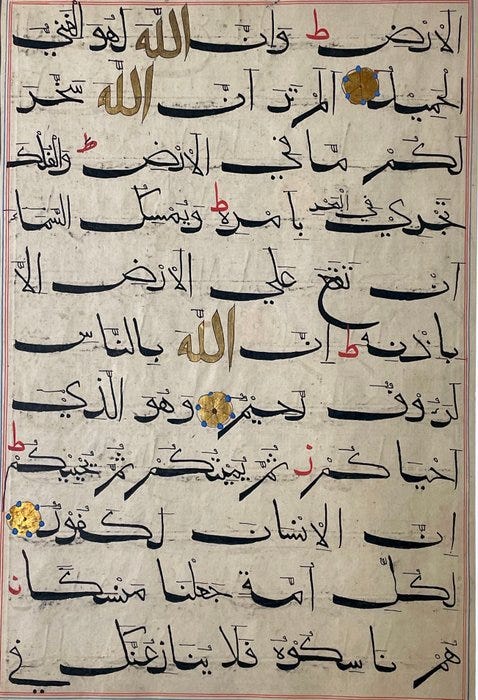 الارض ط وان الله لهو الغني
الحميد الم تر ان الله سخر
لكم ما في الارض ط والفلك
تجري في البحر بامره ط ويمسك السماء
ان تقع علي الارض الا
باذنه ط ان الله بالناس
لرؤف رحيم وهو الذي
احياكم ز ثم يميتكم ثم يحييكم ط
ان الانسان لكفور
لكل امة جعلنا منسكا ن
هم ناسكوه فلا ينازعنك في